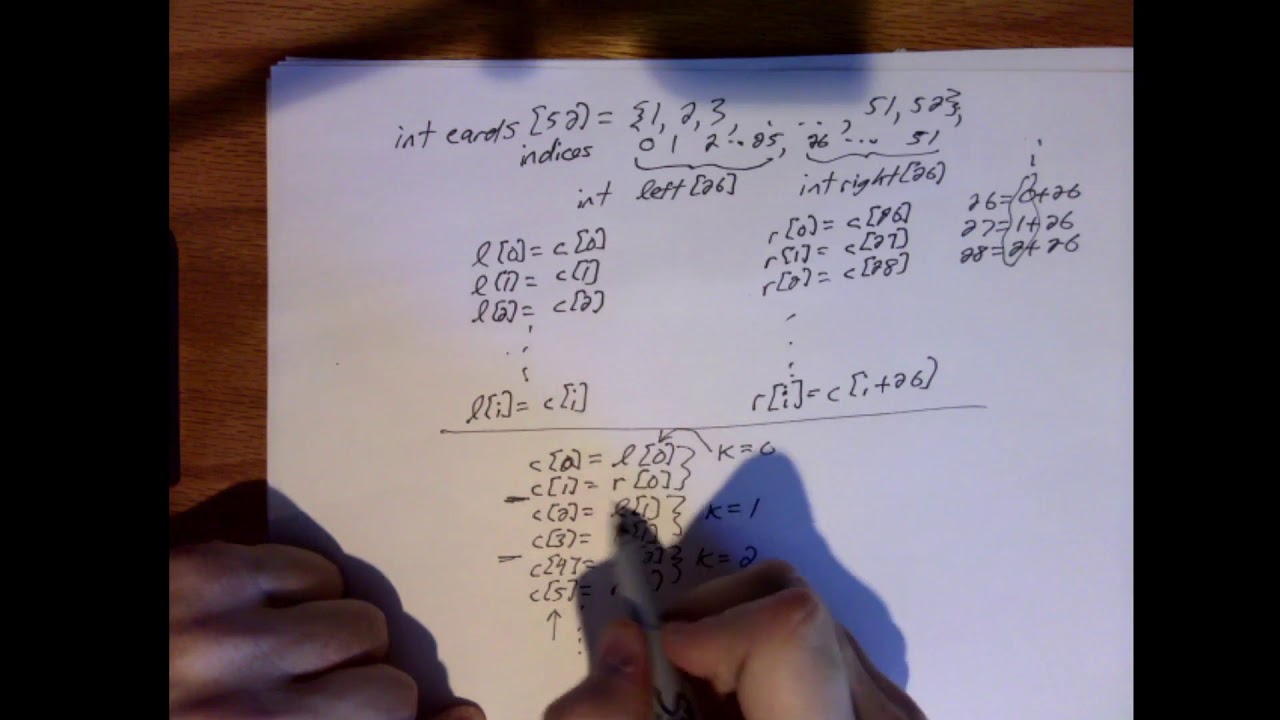 int cards [52] = {1, 2, 3, . . . , 51, 52};
indices 0 1 2 ... 25, 26 ... 51
int left[26] int right[26] i
l[0] = c[0] r[0] = c[26] 26 = 0+26
l[1] = c[1] r[1] = c[27] 27 = 1+26
l[2] = c[2] r[2] = c[28] 28 = 2+26
l[i] = c[i] r[i] = c[i+26]
c[0] = l[0] } k=0
c[1] = r[0]
c[2] = l[1] } k=1
c[3] =
c[4] = } k=2
c[5] =